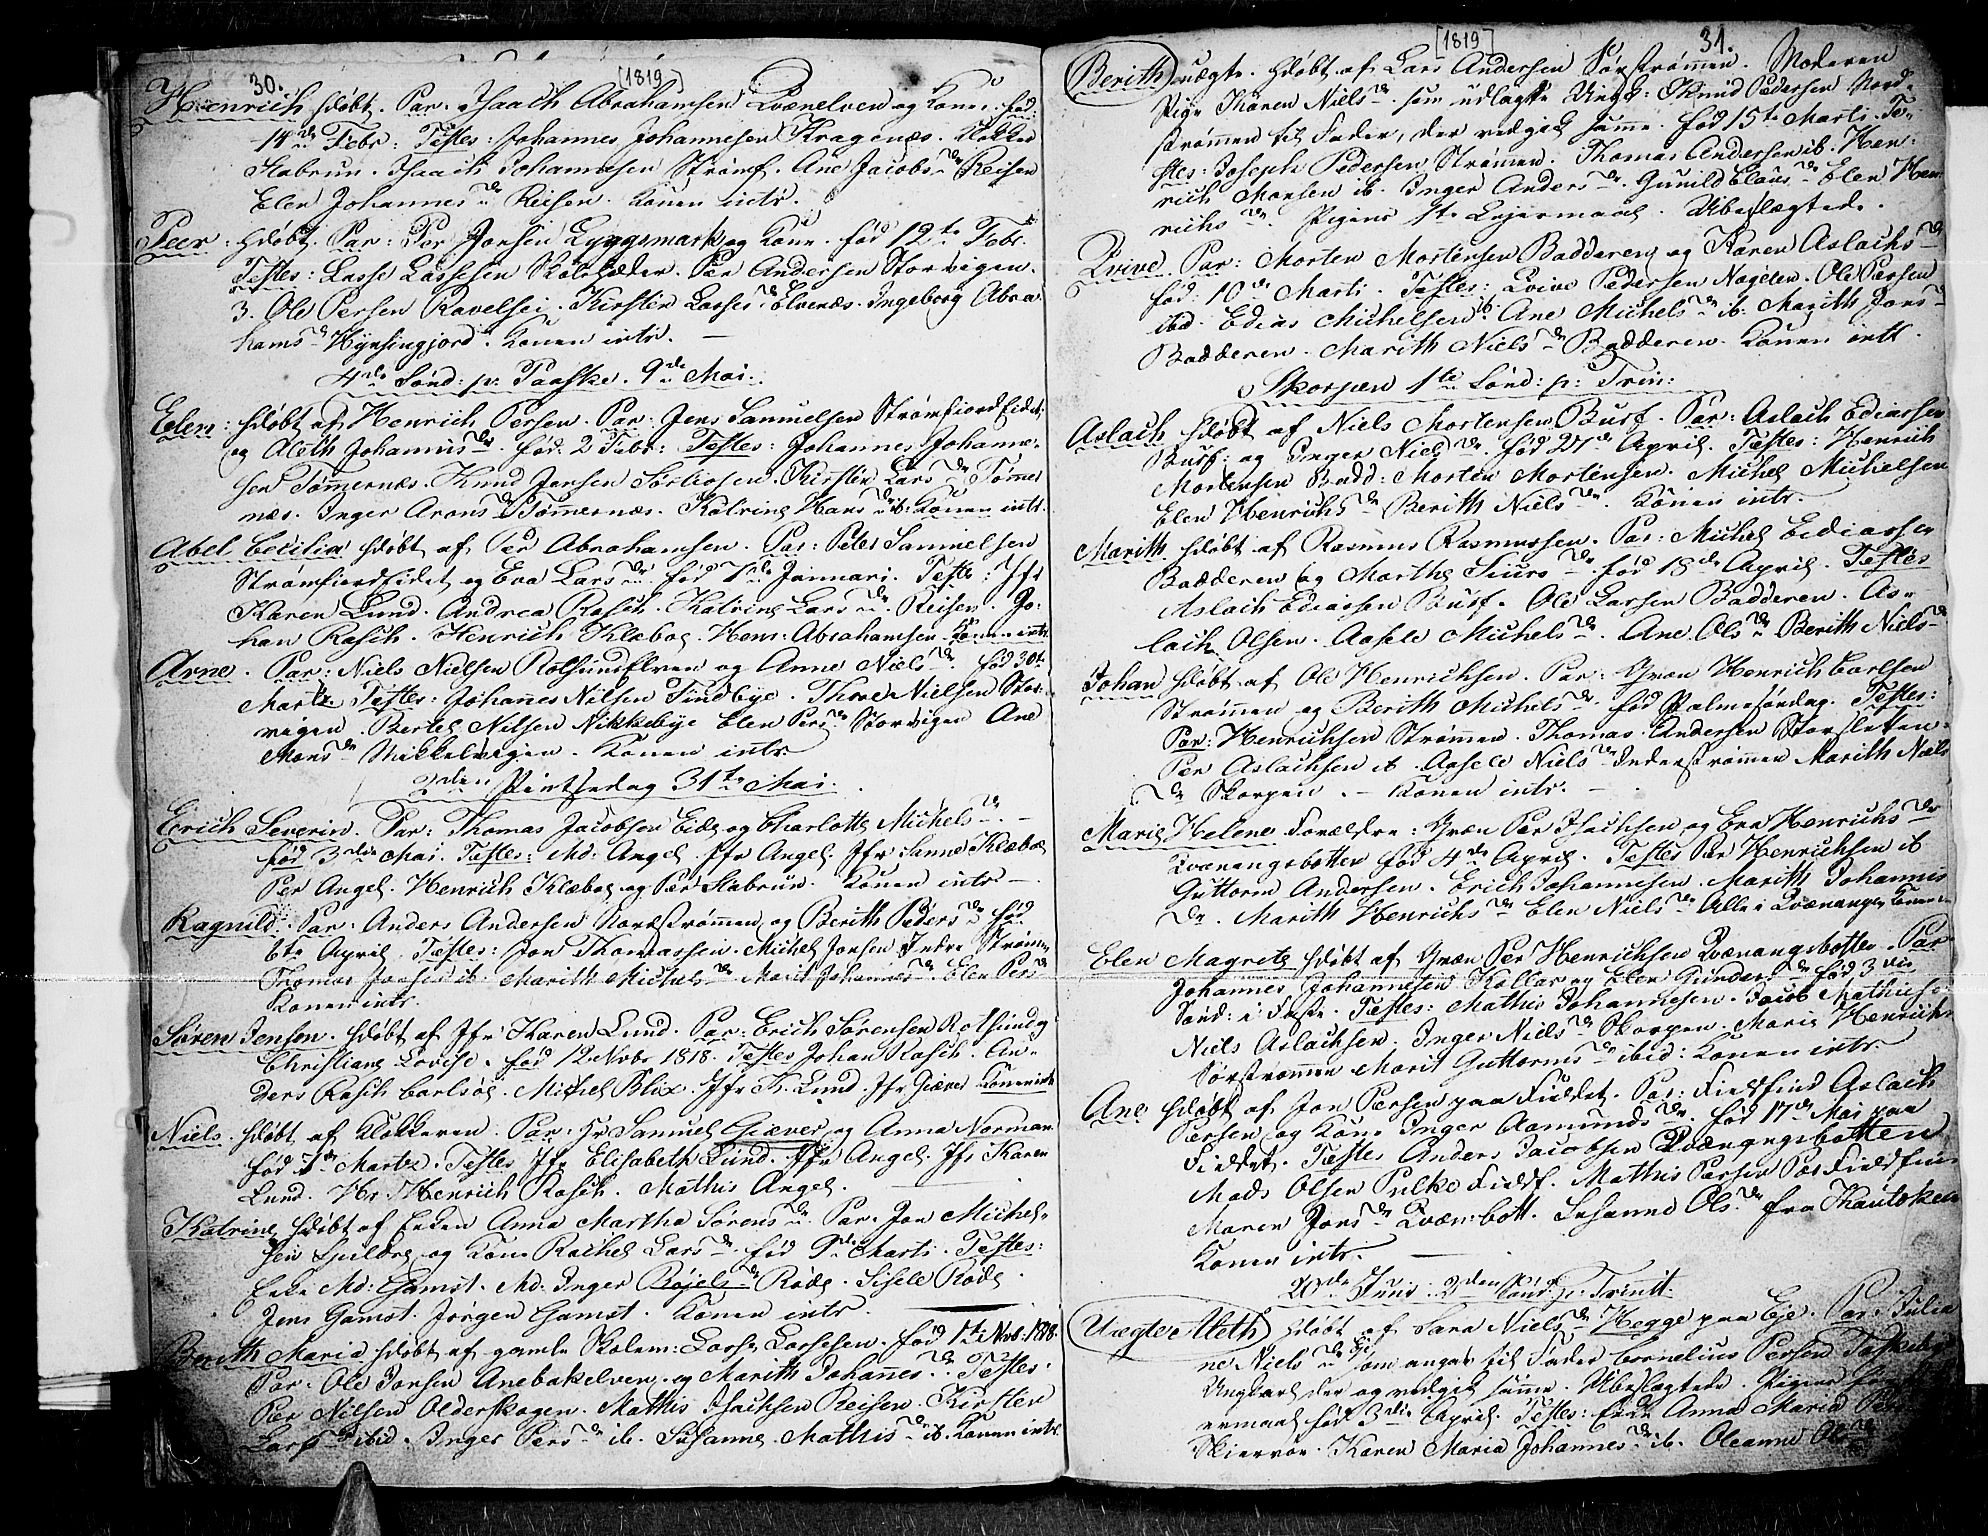 30. [1819]
Henrich hdøbt. Par. Isaach Abrahamsen Qvænelven og Kone. fød
14de Febr: Testes: Johannes Johannesen Kragenæs. Klokker
Habrun. Isaach Johannesen Strømf. Ane Jacobsdr Reisen
Elen Johannesdr Reisen. Konen intr.
Peer: hdøbt. Par: Per Jonsen Lyngsmark og Kone. fød 12te Febr.
Testes: Lasse Lassesen. Per Andersen Storvigen.
3. Ole Persen Ravelsei. Kirsten Lassesdr Elvenæs. Ingeborg Abra
hamsdr Hynsingjord. Konen intr.
4de Sønd: p: Paaske. 9de Mai.
Elen: hdøbt af Henrich Persen. Par: Jens Samuelsen Strømfiordeidet
og Aleth Johannisdr. fød. 2 Febr: Testes: Johannes Johanne-
sen Tømmernæs. Knud Jensen Sørkiosen. Kirsten Larsdr Tømmer
næs. Inger Aronsdr Tømmernæs. Katrine Hansdr ib. Konen intr.
Abel Cecilia hdøbt af Per Abrahamsen. Par: Peter Samuelsen
Strømfiordeidet og Eva Larsdr. fød 7de Januari. Testes: Jfr
Karen Lund. Andrea Rasch. Katrine Larsdr Reisen. Jo-
han Rasch. Henrich Klæboe. Hans Abrahamsen. Konen intr
Arne. Par: Niels Nielsen Rotsundelven og Anne Nielsdr. fød 30te
Marti. Testes: Johannes Nilsen Tindbye. Thore Nielsen Stor-
vigen. Bertel Nilsen Nikkebye Elen Persdr Storvigen Ane
Monsdr Mikkelvigen. Konen intr
2den Pintsedag 31te Mai.
Erich Severin. Par: Thomas Jacobsen Eide og Charlotte Michelsdr.
fød 3die Mai. Testes: Md: Angel. Jfr Angel. Jfr Sanne Klæboe
Per Angel. Henrich Klæboe og Per Habrun. Konen intr
Ragnild. Par: Anders Andersen Nordstrømmen og Berith Pedersdr fød
6te April. Testes: Jon Thomassen. Michel Jonsen Indre Strømen
Thomas Jonsen ib. Marith Michelsdr. Marit Johannesdr. Elen Persdr
Konen intr.
Søren Jensen. hdøbt af Jfr Karen Lund. Par: Erich Sørensen Rotsund og
Christiane Lovise. fød 12 Novbr 1818. Testes Johan Rasch. An-
ders Rasch Carlsøe. Michel Blix. Jfr K. Lund. Jfr Giæver Konen intr
Niels. hdøbt af Klokkeren. Par: Hr Samuel Giæver og Anna Norman
fød 1de Martz. Testes Jfr Elisabeth Lund. Jfr Angel. Jfr Karen
Lund. Hr Henrich Rasch. Mathis Angel.
Katrine hdøbt af Enken Anna Martha Sørensdr. Par. Jon Michel-
sen Spildre og Kone Rachel Larsdr. fød 9de Marti. Testes:
Enke Md: Gamst. Md. Inger Røjelsdr Røde. Sisele Røde
Jens Gamst. Jørgen Gamst. Konen intr.
Berith Maria hdøbt af gamle Skolem: Lasse Lassesen. fød 1te Nvb. 1818.
Par. Ole Jonsen Anebakelven og Marith Johannesdr. Testes.
Per Nilsen Olderskogen. Mathis Isachsen Reisen. Kirsten
Larsdr ibid. Inger Persdr ib. Susanne Mathisdr ib. Konen intr.
[1819] 31.
Berith uægte. hdøbt af Lars Andersen Sørstrømmen. Moderen
Pige Karen Nielsdr. som udlagte Ungk: Knud Pedersen Nord-
strømmen til Fader, der vedgik samme. fød 15te Marti. Te-
stes: Joseph Pedersen Strømen. Thomas Andersen ib. Hen-
rich Monsen ib. Inger Andersdr. Gunild Clausdr Elen Hen
richsdr. Pigens 1te Lejermaal. Ubeslægtede.
Qvive. Par: Morten Mortensen Badderen og Karen Aslachsdr
fød: 10de Marti. Testes: Qvive Pedersen Nogelen. Ole Persen
ibd. Edias Michelsen ib. Ane Michelsdr ib. Marith Jonsdr
Badderen. Marith Nielsdr Badderen. Konen intr.
Skorpen 1te Sønd: p: Trin:
Aslach hdøbt af Niels Mortensen Burf. Par: Aslach Ediassen
Burf. og Inger Nielsdr. fød 27de April. Testes: Henrich
Mortensen Badd: Morten Mortensen. Michel Michelsen
Elen Henrichsdr Berith Nielsdr. Konen intr.
Marith hdøbt af Rasmus Rasmussen. Par: Michel Ediassen
Badderen og Marthe Siursdr. fød 18de April. Testes
Aslach Ediassen Burf. Ole Larsen Badderen. As-
lach Olsen. Aasele Michelsdr. Ane Olsdr Berith Nielsdr
Johan hdøbt af Ole Henrichsen. Par: Qvæn Henrich Carlsen
Strømmen og Berith Michelsdr. fød Palmesøndag. Testes:
Par: Henrichsen Strømmen. Thomas Andersen Storsletten.
Per Aslachsen ib. Aasele Nielsdr Inderstrømmen Marith Niels
dr Skorpen. Konen intr.
Marie Helene Forældre: Qvæn Per Isachsen og Eva Henrichsdr
Qvænangsbotten fød 4de April. Testes Per Henrichsen ib
Guttorm Andersen. Erich Johannesen. Marith Johannis
dr. Marith Henrichsdr Elen Nielsdr Alle i Qvænangen Konen intr
Elen Magrete hdøbt af Qvæn Per Henrichsen Qvænangsbotten. Par
Johannes Johannesen Kollar og Elen Gundersdr fød 3die
Sønd: i Faste. Testes: Mathis Johannesen. Jacob Mathisen
Niels Aslachsen. Inger Nielsdr Skorpen. Marie Henrichs
Sørstrømmen Marit Guttormsdr ibid: Konen intr.
Ane hdøbt af Jon Persen paa Fieldet. Par: Fieldfind Aslach
Persen og Kone Inger Aamundsdr. fød 17de Mai paa
Fieldet. Testes Anders Jacobsen Qvænangsbotten
Mads Olsen Pulke Fieldf. Mathis Persen Per Fieldfin
Maren Jonsdr Qvæn:bott. Susanne Olsdr fra Kautokein
Konen intr.
20de Juni. 2den Sønd p. Trinit.
Uægte Aleth hdøbt af Sara Nielsdr Hegge paa Eje. Par: Julia
ne Nielsdr Eje som angav til Fader Cornelius Persen Taskebye
Ungkarl der og vedgik samme. Ubeslægtede. Pigens
ermaal fød 3die April. Testes: Enke Anna Maria Pers
Skiervøe. Karen Maria Johannesdr ib. Oleanne Olsdr